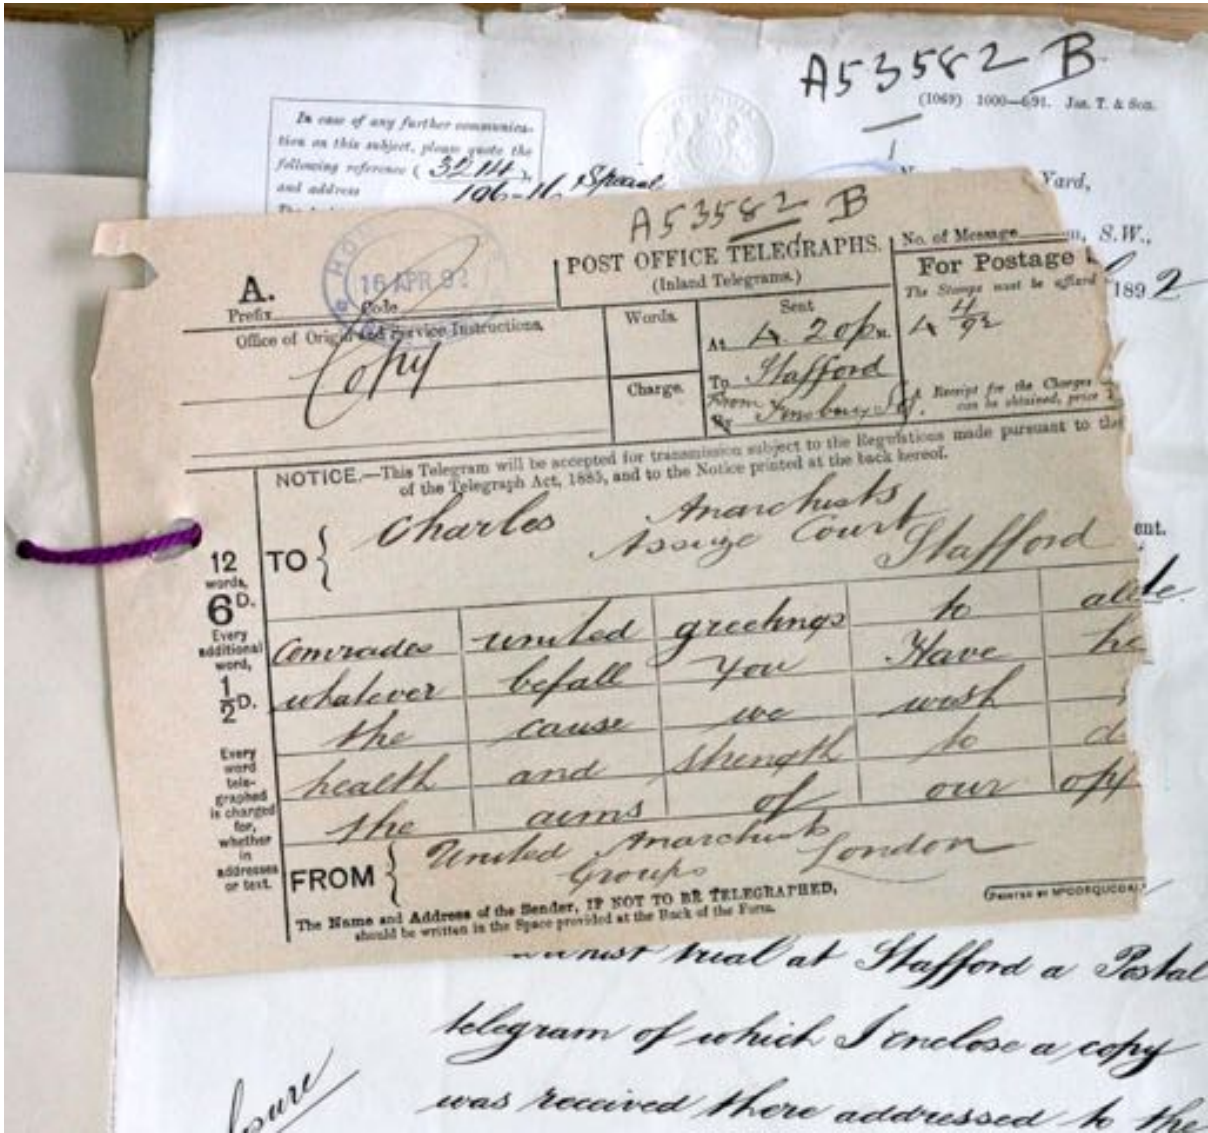 A53582 B
(1069) 1000—6|91. Jas. T. & Son.
In case of any further communica-
tion on this subject, please quote the
following reference (3214),
and address 196-16 Special
Yard,
S.W.,
1892
A53582 B
POST OFFICE TELEGRAPHS.
(Inland Telegrams.)
No. of Message
For Postage
The Stamps must be affixed
4 4/92
A.
Prefix Code
16 APR 92
Office of Origin and Service Instructions.
Copy
Words.
Charge.
Sent
At 4.20 p M.
To Stafford
From
By
Receipt for the Charges
can be obtained, price
NOTICE.—This Telegram will be accepted for transmission subject to the Regulations made pursuant to the
of the Telegraph Act, 1885, and to the Notice printed at the back hereof.
TO { Charles Anarchists
Assize Court
Stafford
ent.
12
words,
6D.
Every
additional
word,
1/2D.
Every
word
tele-
graphed
is charged
for,
whether
in
addresses
or text.
Comrades united greetings to
whatever befall you Have
the cause we wish
health and strength to
the aims of our
FROM { United Anarchists
Groups London
The Name and Address of the Sender, IF NOT TO BE TELEGRAPHED,
should be written in the Space provided at the Back of the Form.
trial at Stafford a Postal
telegram of which I enclose a copy
was received there addressed to the